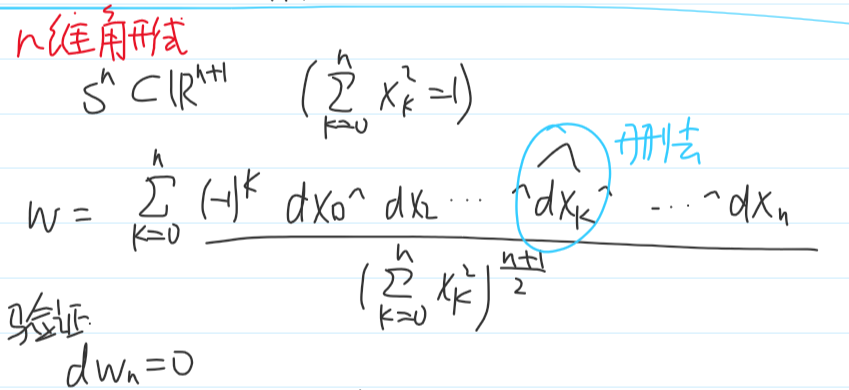 n维角形式
Sⁿ ⊂ ℝⁿ⁺¹ (∑_{k=0}^{n} x_k² = 1)
删去
w = ∑_{k=0}^{n} (-1)^k dx₀ ^ dx₂ ⋯ ^ \widehat{dx_k} ^ ⋯ ^ dx_n
(∑_{k=0}^{n} x_k²)^{\frac{n+1}{2}}
验证:
dw_n = 0